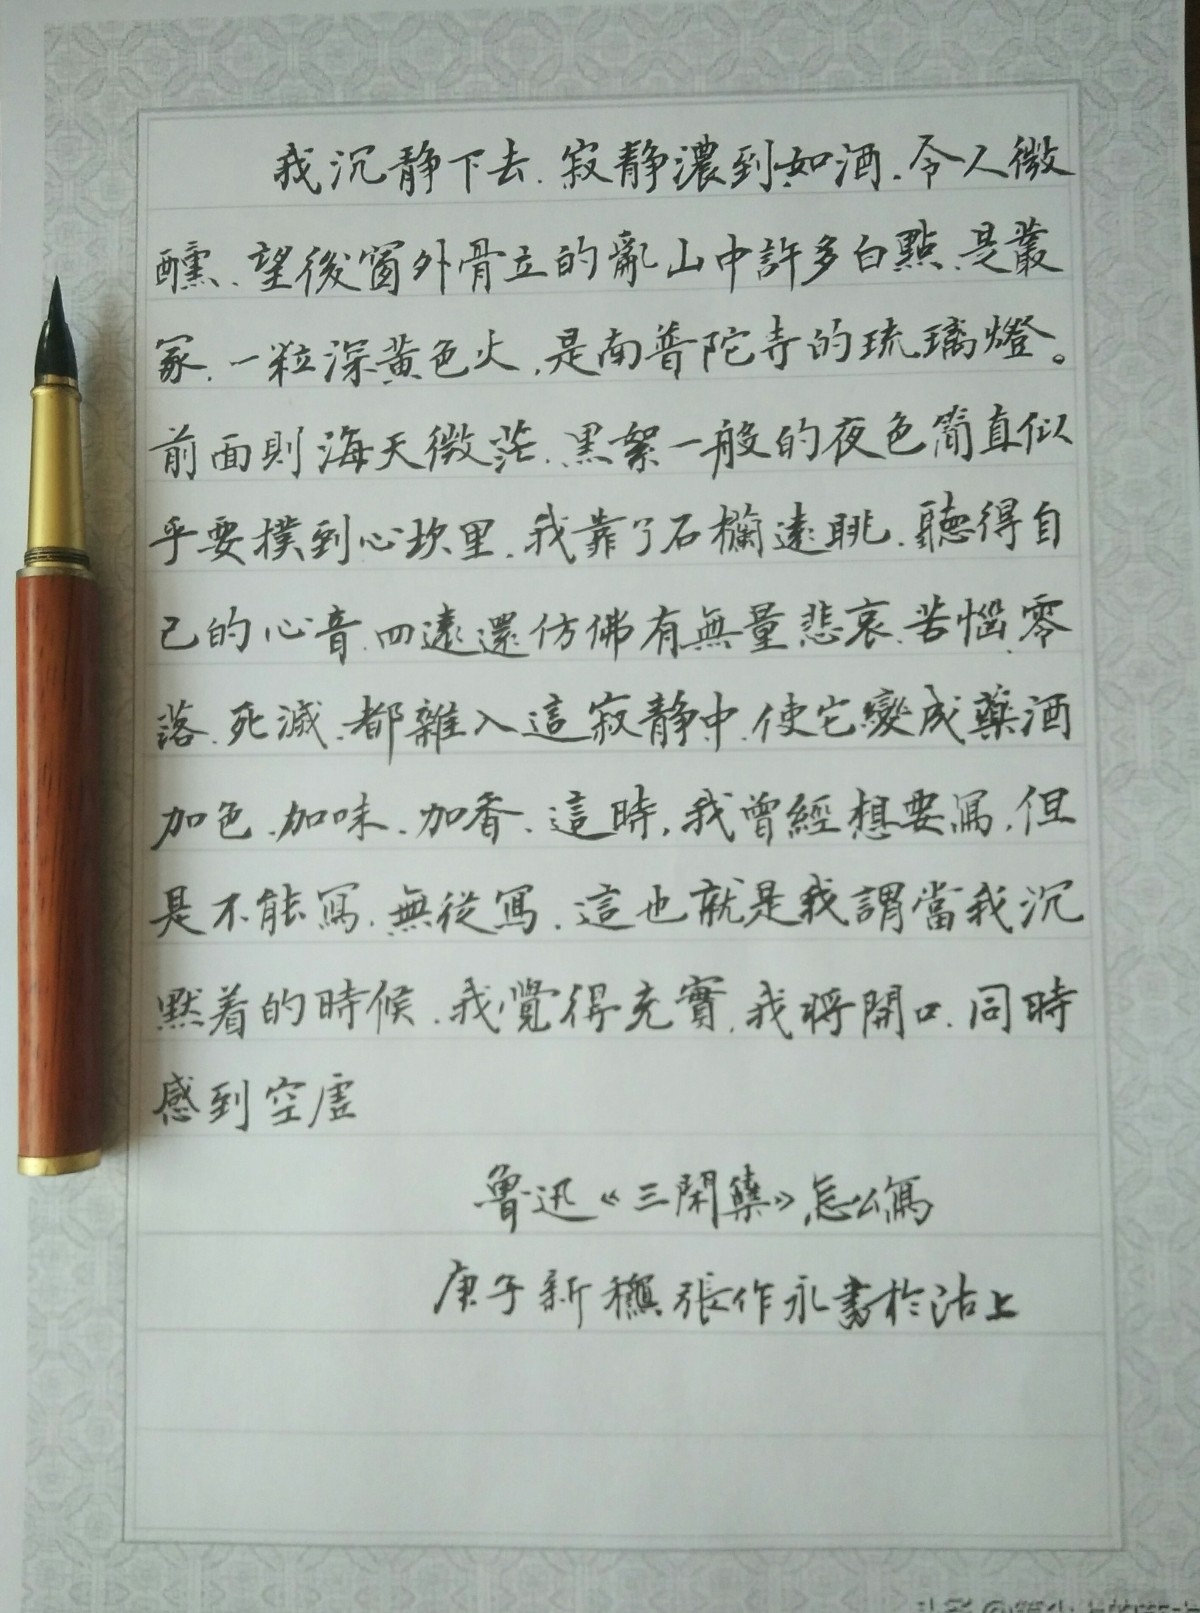 我沉静下去.寂静濃到如酒.令人微
醺.望後窗外骨立的亂山中許多白點.是叢
冢.一粒深黄色火,是南普陀寺的琉璃燈。
前面則海天微茫.黑絮一般的夜色簡直似
乎要撲到心坎里.我靠了石欄遠眺.聽得自
己的心音.四遠還仿佛有無量悲哀.苦惱.零
落.死滅.都雜入這寂静中.使它變成藥酒
加色.加味.加香.這時,我曾經想要寫.但
是不能寫.無從寫.這也就是我謂當我沉
默着的時候.我覺得充實.我將開口.同時
感到空虚
魯迅《三閑集》怎么寫
庚子新穐張作永書於沽上